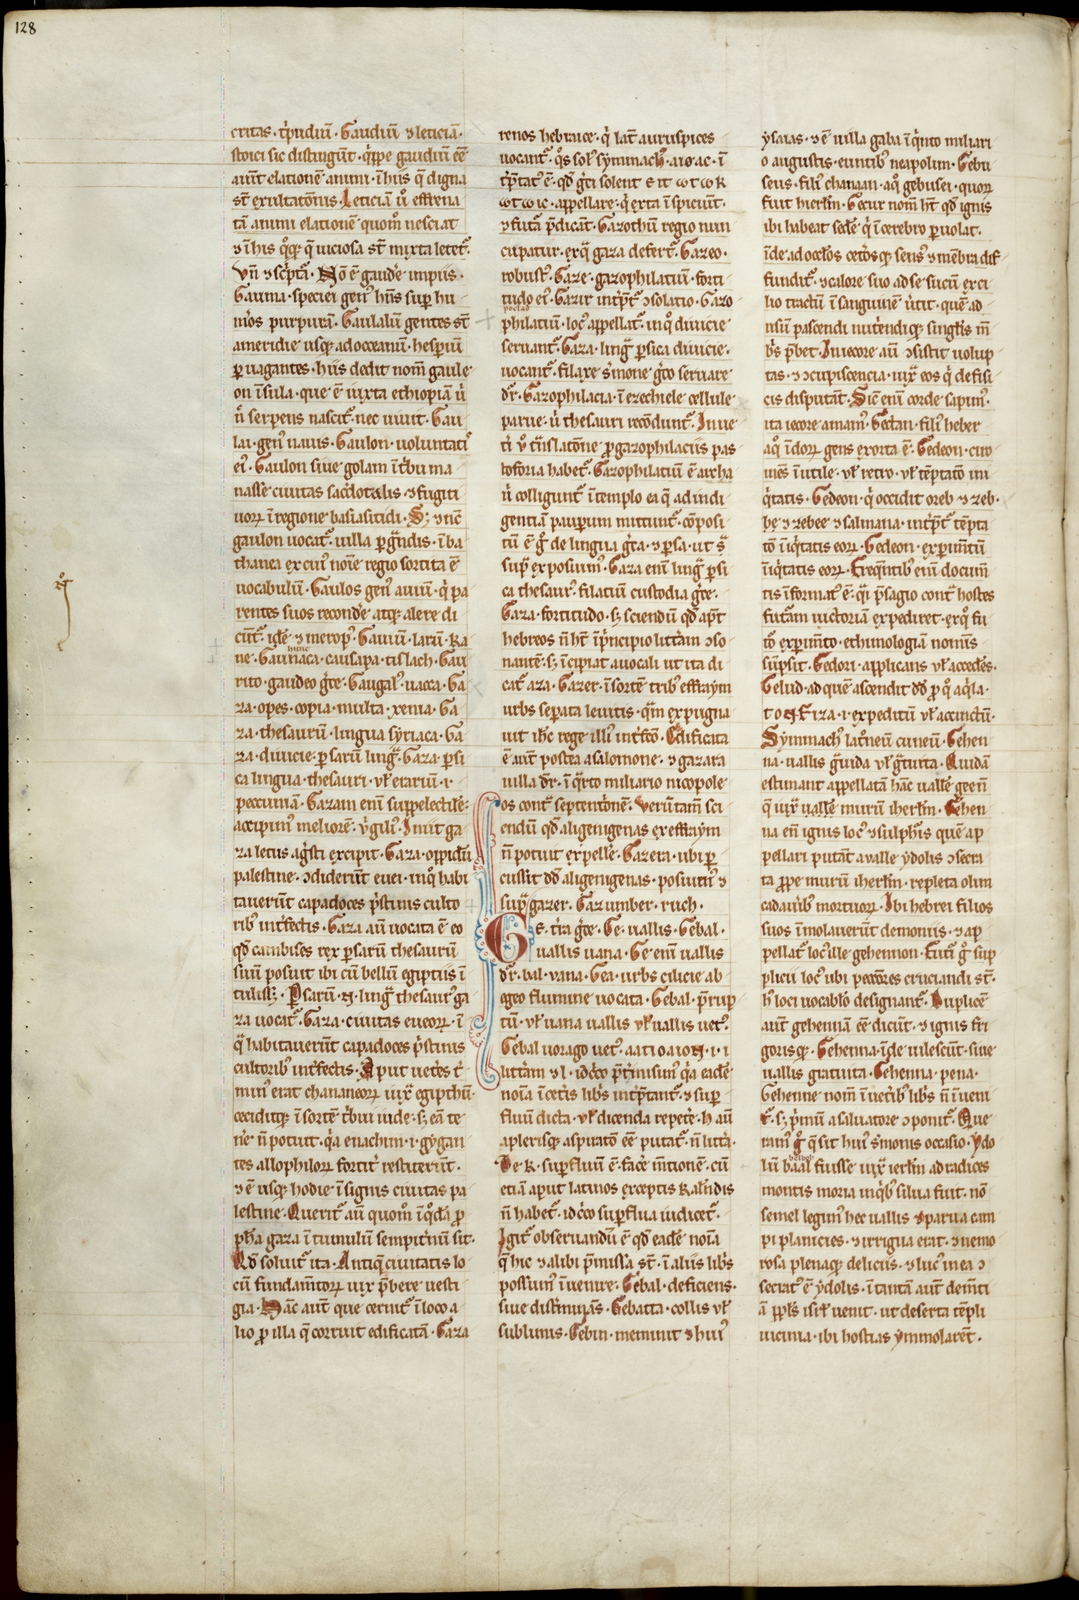 128
critas · t̄pudiū · Gaudiū ⁊ leticiā ·
stoici sic distingūt · q̄ppe gaudiū ēē
aiūt elationē animi · ī hiis q̄ digna
st̄ exultatōnis · Leticiā ū effrena
tā animi elationē quom̄ nesciat
⁊ ī his q̄q̄ q̄ uiciosa st̄ mixta letet᷑ ·
vn̄ ⁊ sc̄pta᷑ · Nō ē gaude impiis ·
Gauma · speciei gen᷑ hn̄s sup̄ hu
m̄os purpurā · Gaulalū gentes st̄
a meridie usq̄ ad occeanū · hesp̄iū
p̱uagantes · hiis dedit nom̄ gaule
on īsula · que ē iuxta ethiopiā ū
n̄ serpens nascit᷑ · nec uiuit · Gau
lai · gen᷑ nauis · Gaulon · uoluntati᷑
ei᷑ · Gaulon siue golam ī t̄bu ma
nasse ciuitas sac̄dotalis · ⁊ fugiti
uoꝝ ī regione basiasitidi · Sꝫ ⁊ nc̄
gaulon uocat᷑ · uilla p̱g̃ndis · ī ba
thanea ex cui᷑ noīe regio sortita ē
uocabulū · Gaulos gen᷑ auiū · q̇ pa
rentes suos reconde᷑ atqꝫ alere di
cūt᷑ · id̄e ⁊ merop᷑ · Gauiū · larū · Ka
hunc
ne · Gaunaca · causapa · tislach · Gau
rito · gaudeo gr̄ce · Gaugal᷑ · uacca · Ga
za · opes · copia · multa · xenia · Ga
za · thesaurū · lingua syriaca · Ga
za · diuicie · p̱sarū ling̃ · Gaza · p̱si
ca lingua · thesauri · vl̄ erariū · i ·
peccuniā · Gazam enī suppelectilē ·
accipim᷑ meliorē · v̄gili᷑ · Inuit ga
za letus ag̃sti excipit · Gaza · opidū
palestine · ↄdiderūt euei · in q̄ habi
tauerūt capadoces p̄stinis culto
rib᷑ int̄fectis · Gaza aū uocata ē eo
qd̄ cambises rex p̱sarū thesaurū
suū posuit ibi cū bellū egiptiis ī
tulissꝫ · P̱sarū · n̄ · ling̃ thesaur᷑ ga
za uocat᷑ · Gaza · ciuitas eueoꝝ · ī
q̃ habitauerūt capadoces p̄stinis
cultorib᷑ int̄fectis · Aput uet̄es t̄
min᷑ erat chananeoꝝ iux᷑ egipthū ·
ceciditqꝫ ī sortē t̄bui iude · sꝫ eā te
ne᷑ n̄ potuit · q̄a enachim · i · gygan
tes allophiloꝝ fortit᷑ restiterūt ·
⁊ ē usqꝫ hodie īsignis ciuitas pa
lestine · Querit᷑ aū quom̄ ī q̄dā p
ph̄a gaza ī tumulū sempit̄nū sit ·
Qd̄ soluit᷑ ita · Antiq̄ ciuitatis lo
cū fundam̄toꝝ uix p̄bere uesti
gia · Hāc aut̄ que cernit᷑ ī loco a
lio p̱ illa q̄ corruit edificatā · Gaza
renos hebraice · q̇ lat̄ auruspices
uocant᷑ · q̄s sol᷑ symmach᷑
t̄p̄tat᷑ ē · qd̄ gr̄ci solent
appellare · q̇ exta īspiciūt ·
⁊ futa᷑ p̄dicāt᷑ · Gazothū regio nun
cupatur · ex q̃ gaza defert᷑ · Gazeo ·
robust᷑ · Gaze · gazophilatiū · forti
tudo ei᷑ · Gazir int̄p̄t᷑ ↄsolatio · Gazo
philatiū · loc᷑ appellat᷑ · in q̄ diuicie
seruant᷑ · Gaza · ling̃ p̱sica diuicie ·
uocant᷑ · filaxe s̄mone gr̄co seruare
dr̄ · Gazophilacia · ī ezechiele cellule
parue · ū thesauri recōdunt᷑ · Inue
ti ÿ t̄nslatōne p̱ gazophilaciis pas
toforia habet᷑ · Gazophilatiū ē archa
ū colligunt᷑ ī templo ea q̄ ad indi
gentiā paup̱um mittunt᷑ · cōposi
tū ē g̊ de lingua gr̄ca · ⁊ p̱sa · ut s̄
sup̃ exposium᷑ · Gaza enī ling̃ p̱si
ca thesaur᷑ · filatiū custodia gr̄ce ·
Gaza · fortitudo · sꝫ sciendū qd̄ apt̄
hebreos n̄ ht̄ ī p̄ncipio litt̄am ↄso
nantē · sꝫ īcipiat a uocali ut ita di
cat᷑ aza · Gazer · ī sortē trib᷑ effraym
urbs sep̱ata leuitis · q̄m expugna
uit ih̄c rege illi᷑ int̄fco᷑ · Edificata
ē aut̄ postea a salomone · ⁊ gazara
uilla dr̄ · ī q̄rto miliario nicopole
os cont᷑ septent̄onē · Verūtam̄ sci
endū qd̄ aligenigenas ex effraym
n̄ potuit expelle᷑ · Gazera · ubi p̱
cussit dd̄ aligenigenas · posuim᷑ ⁊
sup̃ gazer · Gazumber · ruch ·
Ge · t̄ra gr̄ce · Ge · uallis · Gebal ·
uallis uana · Ge · enī uallis
dr̄ · bal · vana · Gea · urbs cilicie ab
ageo flumine uocata · Gebal · p̄rup
tū · vl̄ uana uallis vl̄ uallis uet᷑ ·
Gebal uorago uet᷑ ·
litt̄am ⁊ l · idc̄co p̄t̄misim᷑ q̄a eadē
noīa ī cet̄is lib̄s int̄p̄tant᷑ · ⁊ sup̱
fluū dicta · vl̄ dicenda repet̄e · h aū
a plerisqꝫ aspiratō ēē putat᷑ · n̄ litt̄a ·
De K · sup̱fluū ē · face᷑ m̄tionē · cū
etiā aput latinos exceptis Kal̄ndis
n̄ habet᷑ · idc̄co sup̱flua iudicet᷑ ·
Igit᷑ obseruandū ē qd̄ eadē noīa
q̄ hic ⁊ alibi p̄missa st̄ · ī aliis lib̄s
possum᷑ īuenire · Gebal · deficiens ·
siue disternūs · Gebatta · collis vl̄
sublimis · Gebin · meminit ⁊ hui᷑
ysaias · ⁊ ē uilla gaba ī q̄nto miliari
o augustis · euntib᷑ neapolim · Gebu
seus · fili᷑ chanaan · a q̄ gebusei · quoꝝ
fuit hierl̄m · Gecur nom̄ ht̄ qd̄ ignis
ibi habeat sedē q̇ ī cerebro p̱uolat ·
īde ad oc̄los cet̄osqꝫ sens᷑ ⁊ mēbra dif
fundit᷑ · ⁊ calore suo ad se sucū exci
lio tractū ī sanguinē ūtit · quē ad
usū pascendi nut̄iendiqꝫ singl̄is m̄
b̄s p̄bet · In iecore aū ↄsistit uolup
tas · ⁊ ↄcupiscencia · iux᷑ eos q̇ de fisi
cis disputāt᷑ · Sic̄ enī corde sapim᷑ ·
ita iecore amam᷑ · Gectan · fili᷑ heber
a q̄ īdoꝝ gens exorta ē · Gedeon · cir᷑
iniēs ī utile · vl̄ retro · vl̄ tēptatō ini
q̄tatis · Gedeon · q̇ occidit oreb ⁊ zeb ·
be ⁊ zebee ⁊ salmana · int̄p̄t᷑ tēpta
tō īiq̄tatis eoꝝ · Gedeon · exp̱im̄tū
īiq̄tatis eoꝝ · Freq̄ntib᷑ enī docum̄
tis īformat᷑ ē · q̃i p̄sagio cont᷑ hostes
futām uictoriā expediret · ex q̄ fu
t̄o exp̱im̄to · ethimologiā nom̄is
sūpsit · Gedori · applicans vl̄ accedēs ·
Gelud · ad quē ascendit dd̄ p̱ q̄ aq̄la ·
i · expeditū vl̄ accinctū ·
Symmach᷑ lat̄neū cuneū · Gehen
na · uallis g̃uida vl̄ g̃tuita · Quidā
estimant appellatā hāc uallē geen̄
q̄ iux᷑ uallē murū iherl̄m · Gehen
na eīn ignis loc᷑ ⁊ sulph̄is quē ap
pellari putāt a ualle ydolis ↄsecra
ta p̱pe murū iherl̄m · repleta olim
cadaūib᷑ mortuoꝝ · Ibi hebrei filios
suos īmolauerūt demoniis · ⁊ ap
pellat᷑ loc᷑ ille gehennon · Futi᷑ g̊ sup
plicii loc᷑ ubi pecc̄ores cruciandi st̄ ·
h᷑ loci uocablo designant᷑ · Duplicē
aut̄ gehennā ēē dicūt · ⁊ ignis ⁊ fri
gorisqꝫ · Gehenna · īde uilescūt · siue
uallis gratuita · Gehenna · pena ·
Gehenne nom̄ ī uet̄ib᷑ lib̄s n̄ īueni
t᷑ · sꝫ p̄mū a saluatore ↄponit᷑ · Que
ram᷑ g̊ q̄ sit hui᷑ s̄monis occasio · ydo
lū baal fuisse iux᷑ ierl̄m ad radices
montis moria in q̄b᷑ silua fuit · nō
semel legim᷑ hec uallis ⁊ parua cam
pi planicies · ⁊ irrigua erat · ⁊ nemo
rosa plenaqꝫ deliciis · ⁊ luc᷑ in ea ↄ
secrat᷑ ē ydolis · ī tantā aut̄ dem̄ti
ā pp̄ls isr̄l uenit · ut deserta tēpli
uicinia · ibi hostias ymmolaret ·